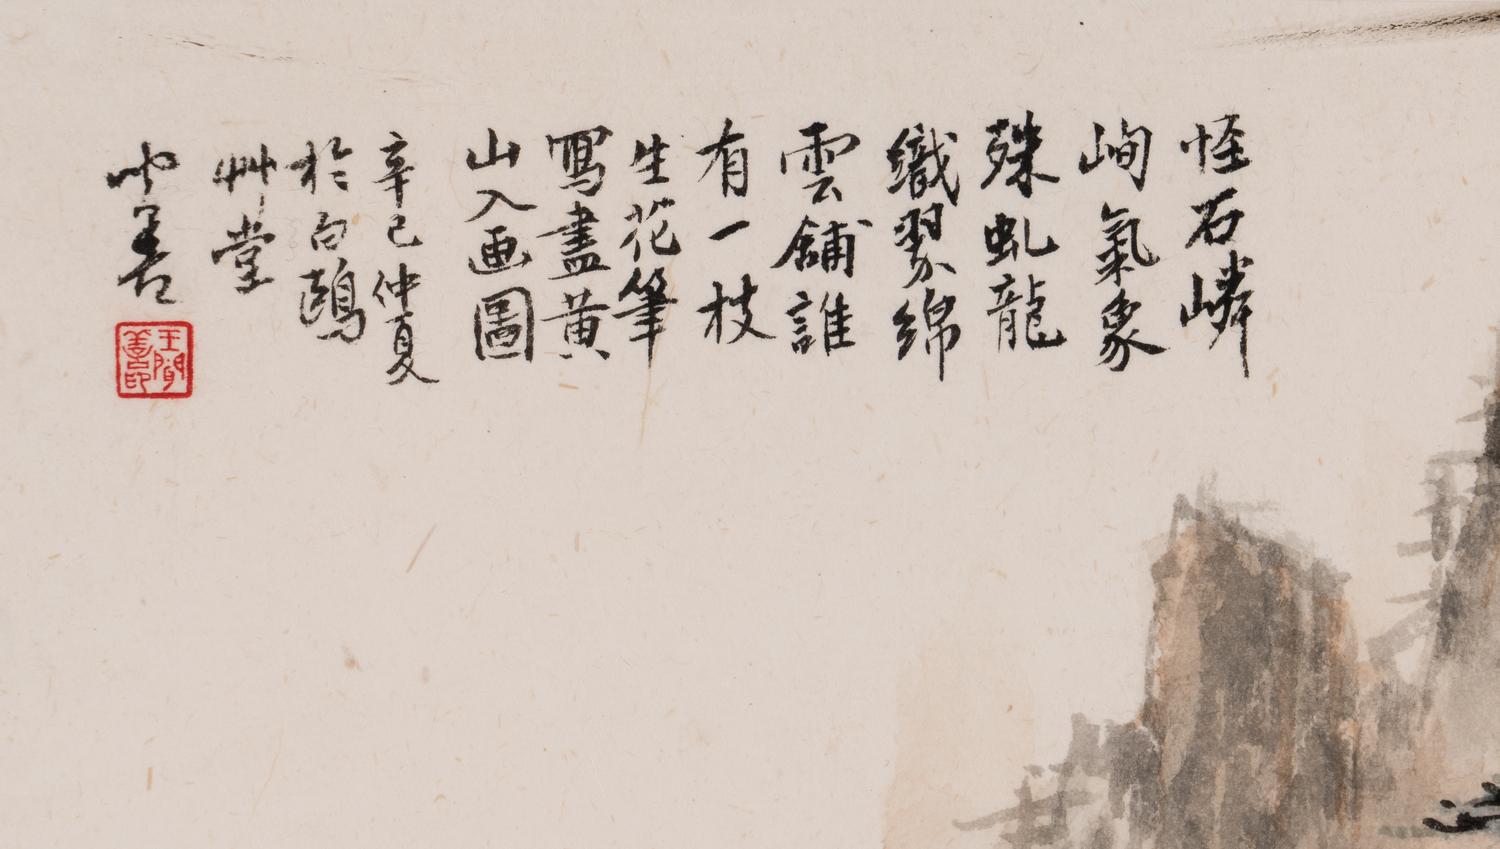 怪石嶙
峋氣象
殊虬龍
織翠綿
雲鋪誰
有一枝
生花筆
寫盡黃
山入画圖
辛巳仲夏
於白鷗
艸堂
善
王閒
善印